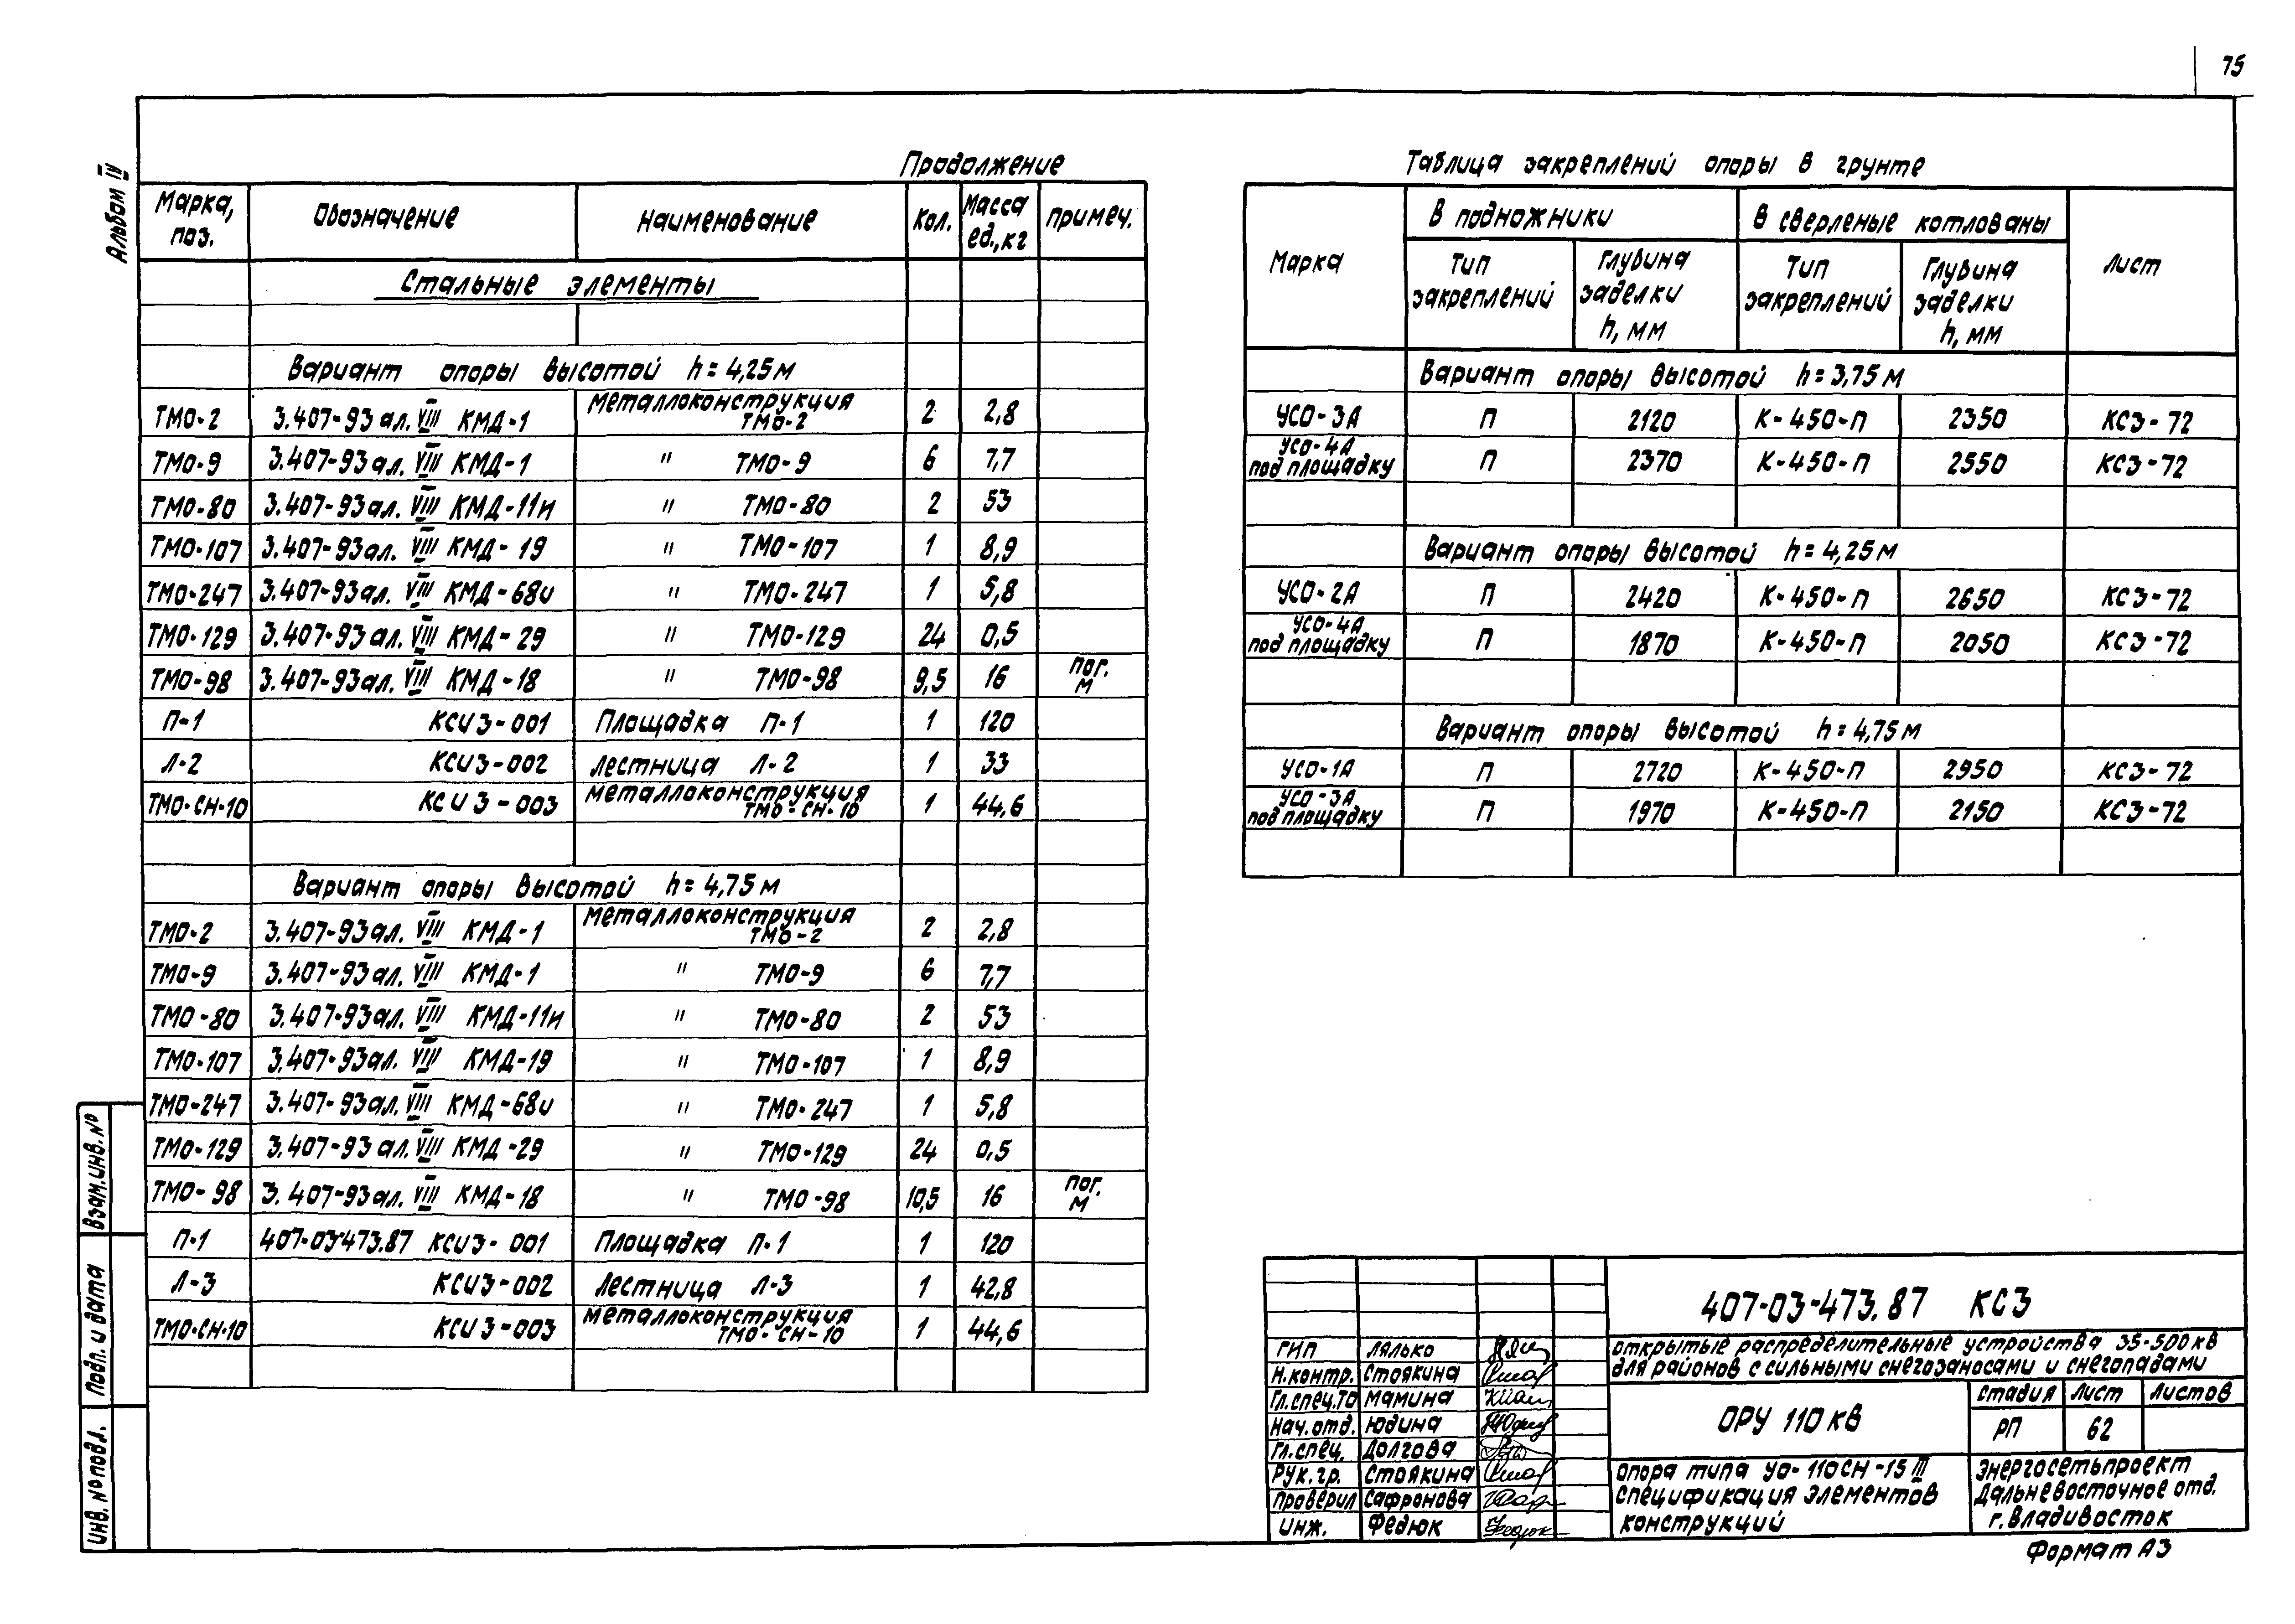 75
Альбом IV
Продолжение
Марка, поз. Обозначение Наименование Кол. Масса ед., кг Примеч.
Стальные элементы
Вариант опоры высотой h = 4,25 м
ТМО-2 3.407-93 ал. VIII КМД-1 Металлоконструкция ТМО-2 2 2,8
ТМО-9 3.407-93 ал. VIII КМД-1 " ТМО-9 6 7,7
ТМО-80 3.407-93 ал. VIII КМД-11и " ТМО-80 2 53
ТМО-107 3.407-93 ал. VIII КМД-19 " ТМО-107 1 8,9
ТМО-247 3.407-93 ал. VIII КМД-68и " ТМО-247 1 5,8
ТМО-129 3.407-93 ал. VIII КМД-29 " ТМО-129 24 0,5
ТМО-98 3.407-93 ал. VIII КМД-18 " ТМО-98 9,5 16 пог. м
П-1 КСИ3-001 Площадка П-1 1 120
Л-2 КСИ3-002 Лестница Л-2 1 33
ТМО-СН-10 КСИ3-003 Металлоконструкция ТМО-СН-10 1 44,6
Вариант опоры высотой h = 4,75 м
ТМО-2 3.407-93 ал. VIII КМД-1 Металлоконструкция ТМО-2 2 2,8
ТМО-9 3.407-93 ал. VIII КМД-1 " ТМО-9 6 7,7
ТМО-80 3.407-93 ал. VIII КМД-11и " ТМО-80 2 53
ТМО-107 3.407-93 ал. VIII КМД-19 " ТМО-107 1 8,9
ТМО-247 3.407-93 ал. VIII КМД-68и " ТМО-247 1 5,8
ТМО-129 3.407-93 ал. VIII КМД-29 " ТМО-129 24 0,5
ТМО-98 3.407-93 ал. VIII КМД-18 " ТМО-98 10,5 16 пог. м
П-1 407-03-473.87 КСИ3-001 Площадка П-1 1 120
Л-3 КСИ3-002 Лестница Л-3 1 42,8
ТМО-СН-10 КСИ3-003 Металлоконструкция ТМО-СН-10 1 44,6
Таблица закреплений опоры в грунте
Марка В подножники В сверленые котлованы Лист
Тип закреплений Глубина заделки h, мм Тип закреплений Глубина заделки h, мм
Вариант опоры высотой h = 3,75 м
УСО-3А П 2120 К-450-П 2350 КС3-72
УСО-4А под площадку П 2370 К-450-П 2550 КС3-72
Вариант опоры высотой h = 4,25 м
УСО-2А П 2420 К-450-П 2650 КС3-72
УСО-4А под площадку П 1870 К-450-П 2050 КС3-72
Вариант опоры высотой h = 4,75 м
УСО-1А П 2720 К-450-П 2950 КС3-72
УСО-3А под площадку П 1970 К-450-П 2150 КС3-72
Взам. инв. №
Подп. и дата
Инв. № подл.
407-03-473.87 КС3
Открытые распределительные устройства 35-500 кв
для районов с сильными снегозаносами и снегопадами
ГИП Лялько
Н.контр. Стоякина
Гл.спец.ТО Мамина
Нач.отд. Юдина
Гл.спец. Долгова
Рук.гр. Стоякина
Проверил Сафронова
Инж. Федюк
ОРУ 110 кв
Стадия Лист Листов
РП 62
Опора типа УО-110СН-15 III
Спецификация элементов
конструкций
Энергосетьпроект
Дальневосточное отд.
г. Владивосток
Формат А3